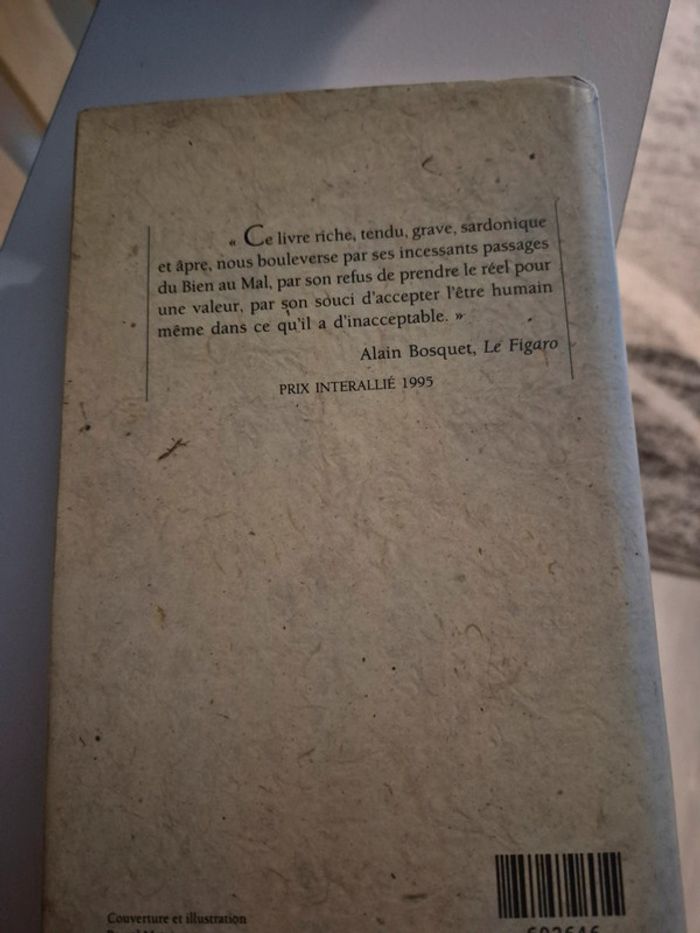 « Ce livre riche, tendu, grave, sardonique
et âpre, nous bouleverse par ses incessants passages
du Bien au Mal, par son refus de prendre le réel pour
une valeur, par son souci d'accepter l'être humain
même dans ce qu'il a d'inacceptable. »
Alain Bosquet, Le Figaro
PRIX INTERALLIÉ 1995
Couverture et illustration